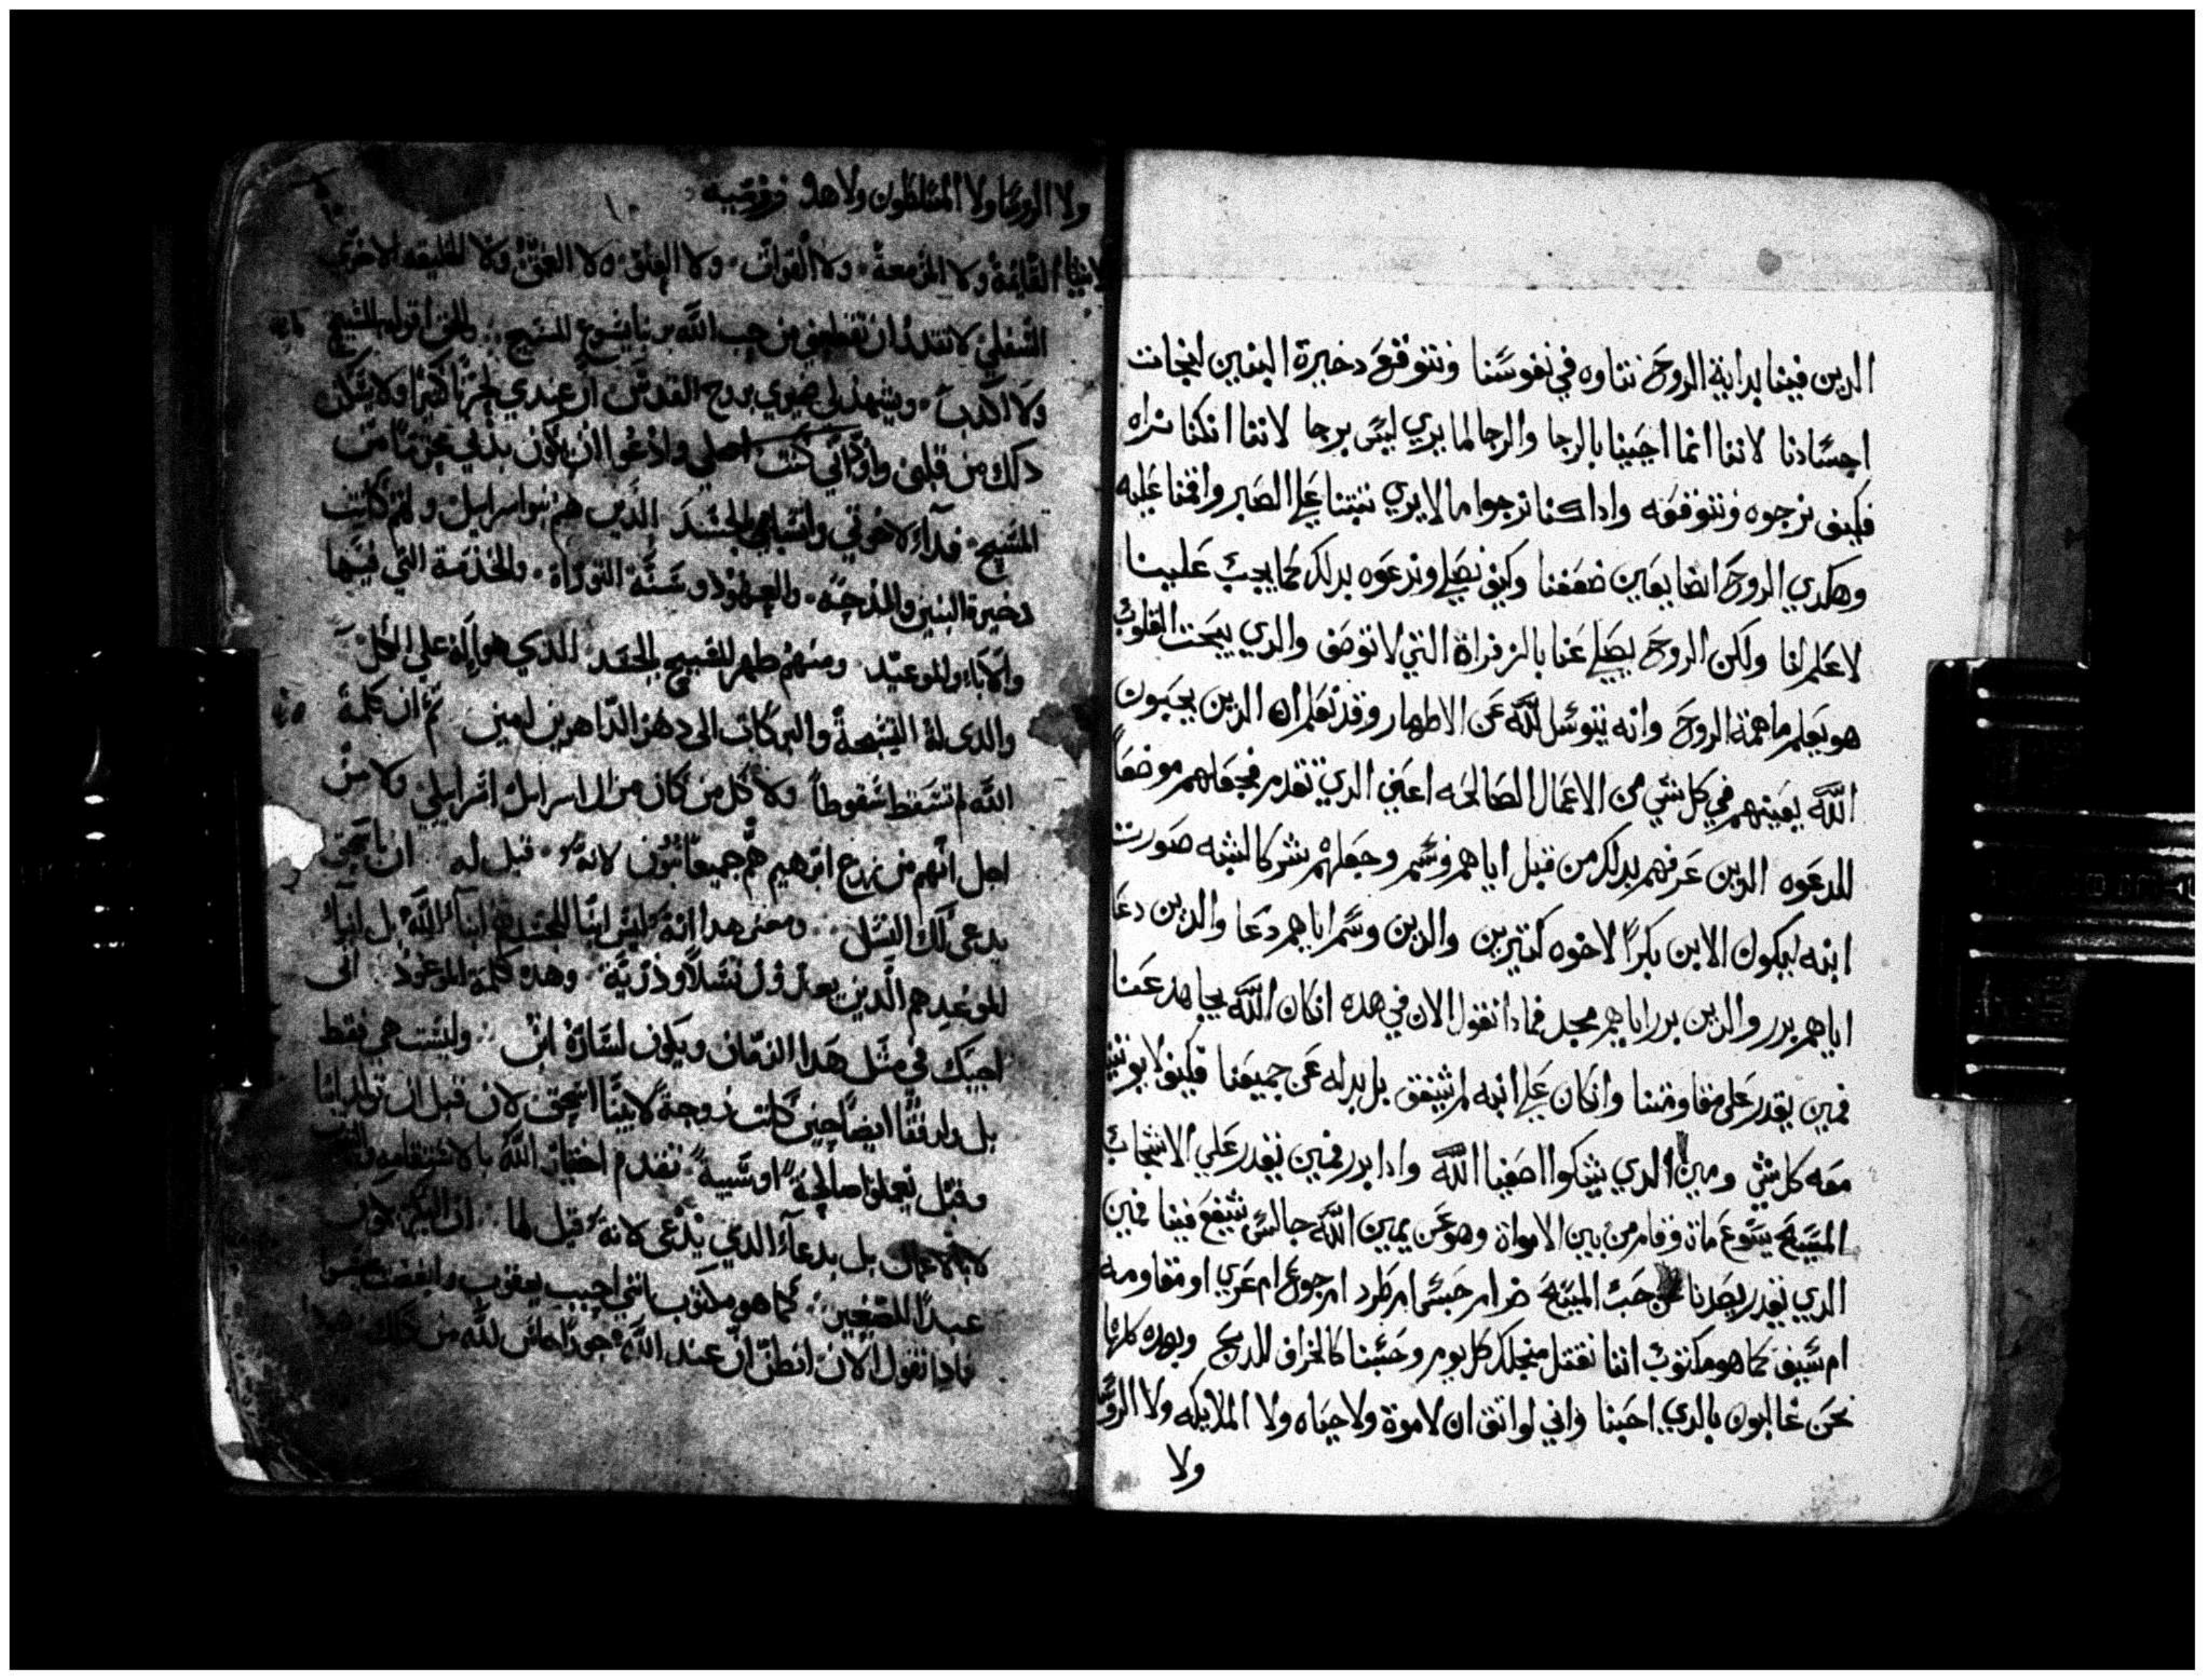 الدين فينا بداية الروح نتاوه في نفوسنا ونتوقع دخيرة البنين لنجات
اجسادنا لاننا انما اجينا بالرجا والرجا لما يري ليس برجا لاننا انكنا نراه
فكيف نرجوه ونتوقعه وادا كنا نرجوا ما لا يري تبتنا علي الصبر واقمنا عليه
وهكدي الروح ايضا يعين ضعفنا وكيف نصلي وندعوه بدلك كما يجب علينا
لا علم لنا ولكن الروح يصلي عنا بالزفراة التي لا توصف والدي يبحت القلوب
هو يعلم ما همة الروح وانه يتوسل لله عن الاطهار وقد نعلم ان الدين يحبون
الله يعينهم في كل شي من الاعمال الصالحه اعني الدي تقدم فجعلهم موضعا
للدعوه الدين عرفهم بدلك من قبل اياهم وسم وجعلهم شركا لشبه صورت
ابنه ليكون الابن بكرا لاخوه كتيرين والدين وسم اياهم دعا والدين دعا
اياهم برر والدين برر اياهم مجد فمادا نقول الان في هده انكان الله يجاهد عنا
فمين يقدر علي مقاومتنا وانكان علي ابنه لم يشفق بل بدله عن جميعنا فكيف لا يوتينا
معه كل شي ومين الدي يشكوا اصفيا الله وادا برر فمين يقدر علي الاشجاب
المسيح يسوع مات وقام من بين الاموات وهو عن يمين الله جالس يشفع فينا فمين
الدي يقدر يصدنا عن حب المسيح ضر ام حبس ام طرد ام جوع ام عري او مقاومه
ام سيف كما هو مكتوب اننا نقتل منجلك كل يوم وحسبنا كالخراف للدبح وبهده كلها
نحن غالبون بالدي احبنا واني لواتق ان لا موت ولا حياه ولا الملايكه ولا الروسا
ولا
ولا الروسا ولا المسلطون ولا هدا
الاشيا القايمة ولا المزمعة ولا القوات ولا العلو ولا العمق ولا الخليقه الاخري
السفلي لا تقتدر ان تقطعني من حب الله بربنا يسوع المسيح والحق اقول بالمسيح
ولا اكدب ويشهد لي ضميري بروح القدس ان عندي لحزنا كبيرا ولا يسكن
دلك من قلبي واودّ اني كنت اصلي وادعوا ان يكون بدني محرما من
المسيح فداء لاخوتي وانسبايي بالجسد الدين هم بنو اسرائيل ولهم كانت
دخيرة البنين والمدحة والعهود وسنة التوراة والخدمة التي فيها
والاباء والمواعيد ومنهم ظهر المسيح بالجسد الدي هو اله علي الكل
والدى له التسبحة والبركات الى دهر الداهرين امين تم ان كلمة
الله لم تسقط سقوطا ولا كل من كان من ال اسرائيل اسرائيلي ولا من
اجل انهم من زرع ابرهيم هم جميعا بنون لانه قيل له ان باسحق
يدعى لك النسل ومعنى هدا انه ليس ابنا الجسد هم ابناء الله بل ابناء
الموعد هم الدين يعدون نسلا وذرية وهده كلمة الموعود انى
اجيك في مثل هدا الزمان ويكون لسارة ابن وليست هي فقط
بل ورفقا ايضا حين كانت زوجة لابينا اسحق لان قبل ان تولد ابنا
وقبل يعملوا صالحة او سيية تقدم اختيار الله
لا بالاعمال بل بدعاء الدي يدعى لانه قيل لها ان الكبير يكون
عبدا للصغير كما هو مكتوب اني احببت يعقوب وابغضت عيسو
مادا نقول الان انظن ان عند الله جورا حاش لله من دلك